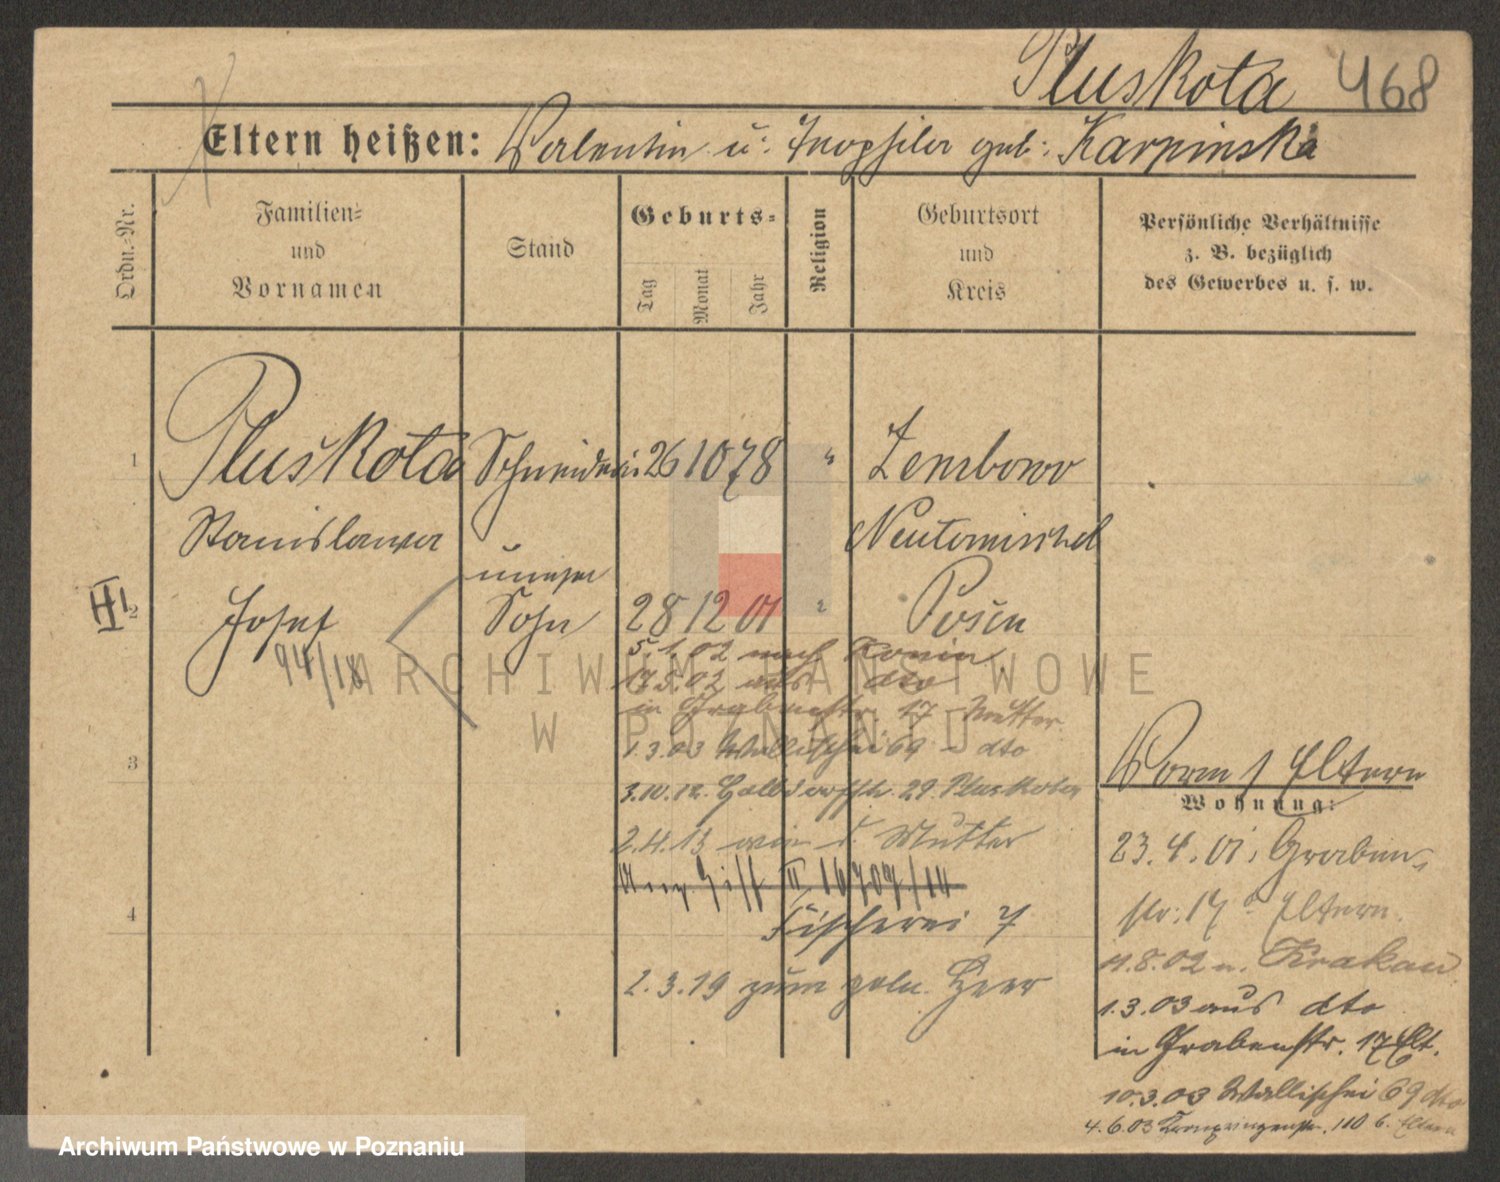 Pluskota 468
Eltern heißen: Valentin u. geb. Karpinska
Ordn.-Nr.
Familien-
und
Vornamen
Stand
Geburts-
Tag
Monat
Jahr
Religion
Geburtsort
und
Kreis
Persönliche Verhältnisse
z. B. bezüglich
des Gewerbes u. s. w.
1 Pluskota Schneiderin 26 10 78 " Zembowo
Stanislawa Neutomischel
2 Josef Sohn 28 12 01 Posen
94/18
5.1.02 nach Konin
17.5.02 aus dto
in Grabenstr. 17 Mutter
1.3.03 Wallischei 69 - dto
3
3.10.12. 29. Pluskota
2.4.13 wie d. Mutter
II 16707/14
4
Fischerei 7
2.3.19 zum poln. Heer
Vorm / Eltern
Wohnung:
23.4.01. Graben
str. 17 b Eltern.
11.8.02 n. Krakau
1.3.03 aus dto
in Grabenstr. 17 Elt.
10.3.03 Wallischei 69 dto
4.6.03 Kronprinzenstr. 110 b. Eltern
ARCHIWUM PAŃSTWOWE
W POZNANIU
Archiwum Państwowe w Poznaniu